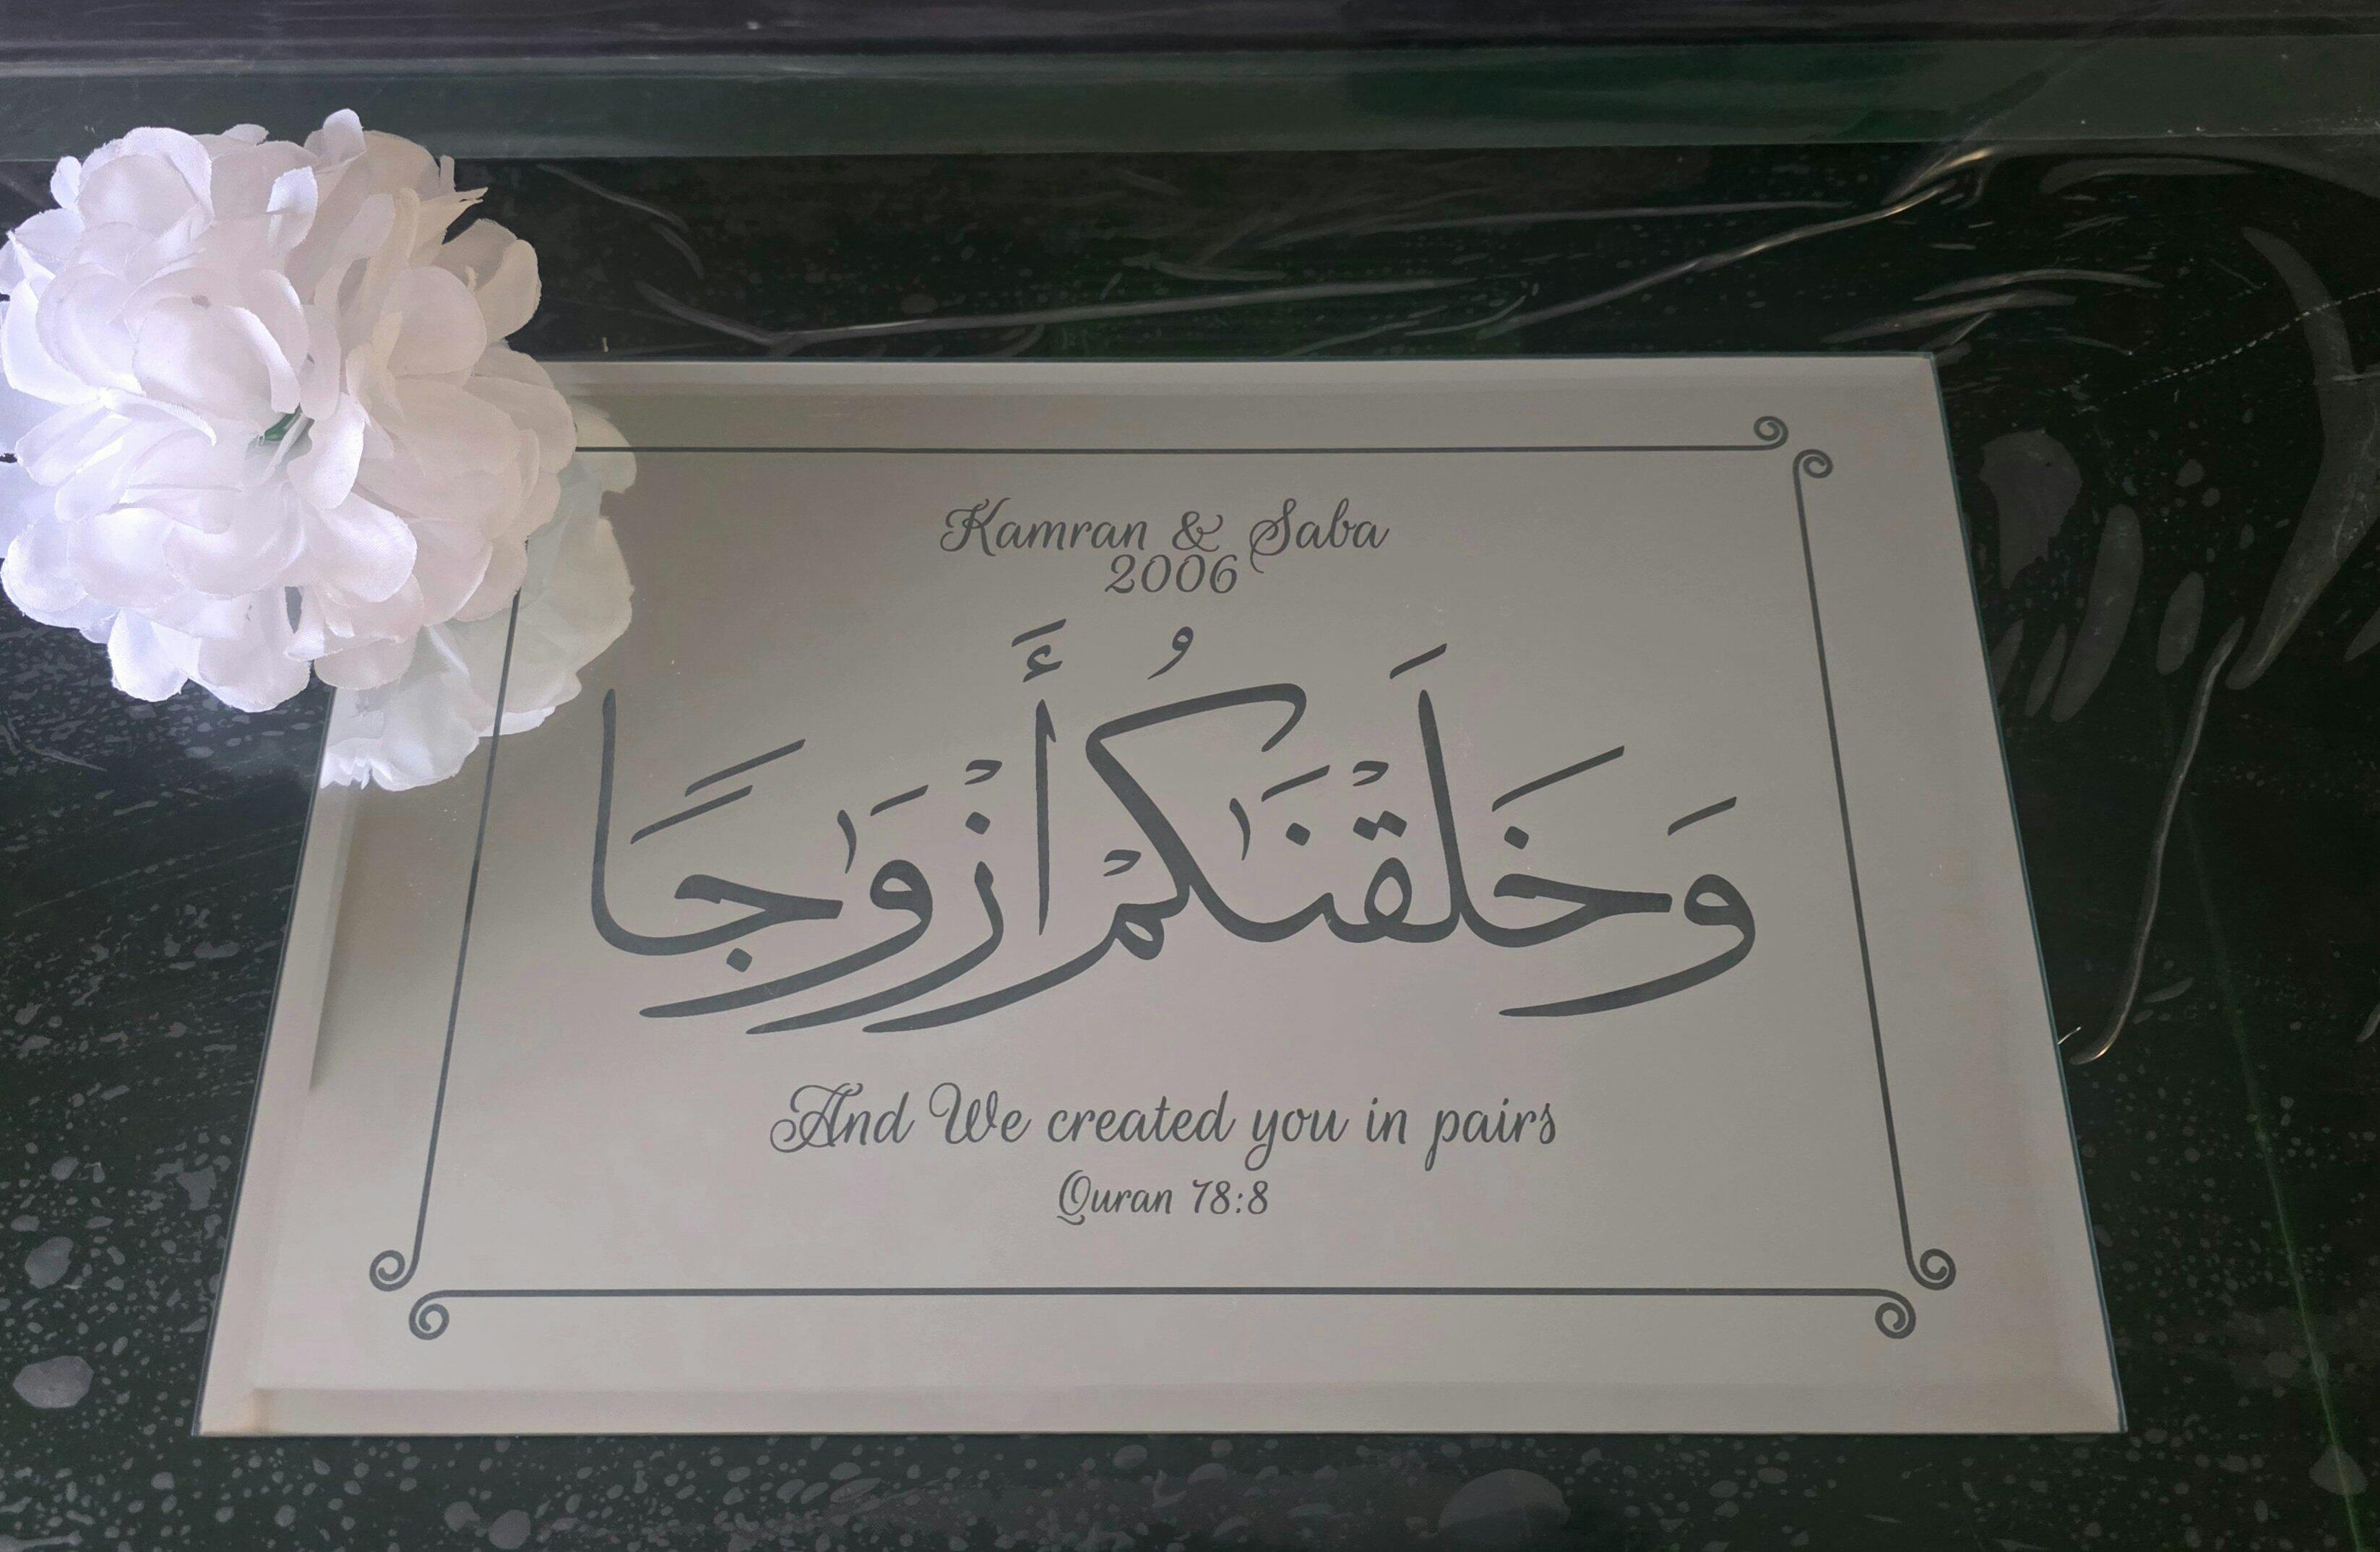 Kamran & Saba
2006
وَخَلَقْنَٰكُمْ أَزْوَٰجًا
And We created you in pairs
Quran 78:8